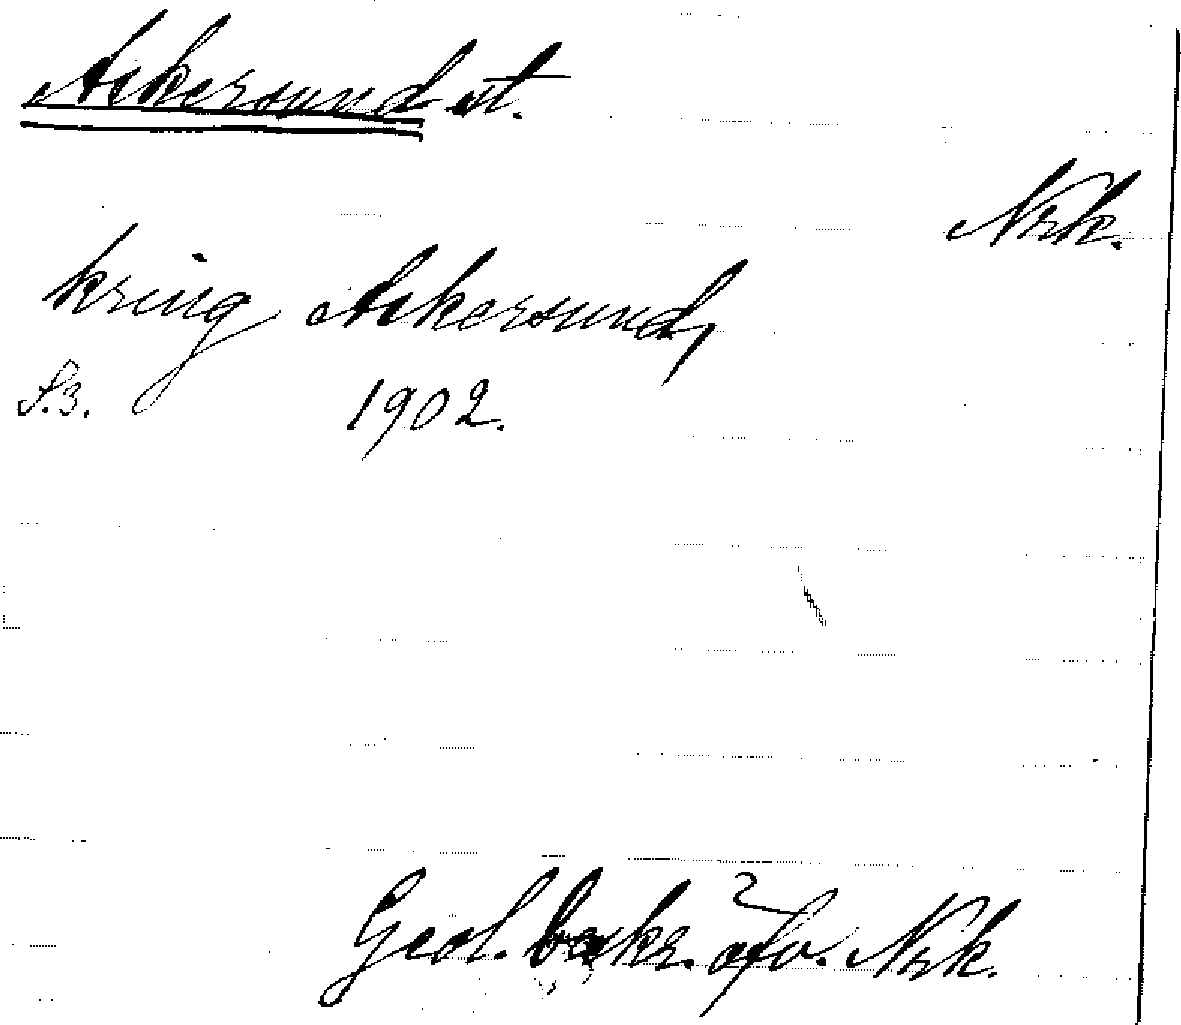 Askersund st.
Nrk.
kring Askersund,
S. 3. 1902.
Geol. beskr. öfv. Nrk.